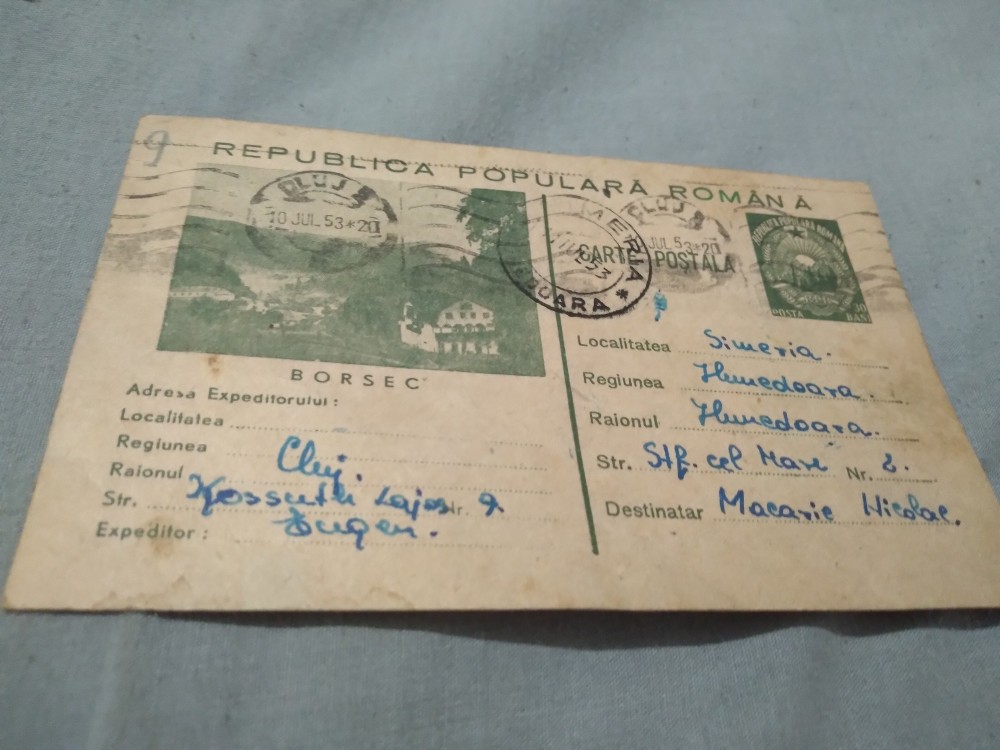 9
REPUBLICA POPULARĂ ROMÂNĂ
CLUJ
10 JUL 53*20
CLUJ
JUL 53*20
CARTE POȘTALĂ
53
POSTA
BANI
BORSEC
Adresa Expeditorului:
Localitatea
Regiunea Cluj.
Raionul
Str. Kossuth Lajos Nr. 9.
Expeditor:
Localitatea Simeria.
Regiunea Hunedoara.
Raionul Hunedoara.
Str. Ștf. cel Mare Nr. 2.
Destinatar Macarie Nicolae.